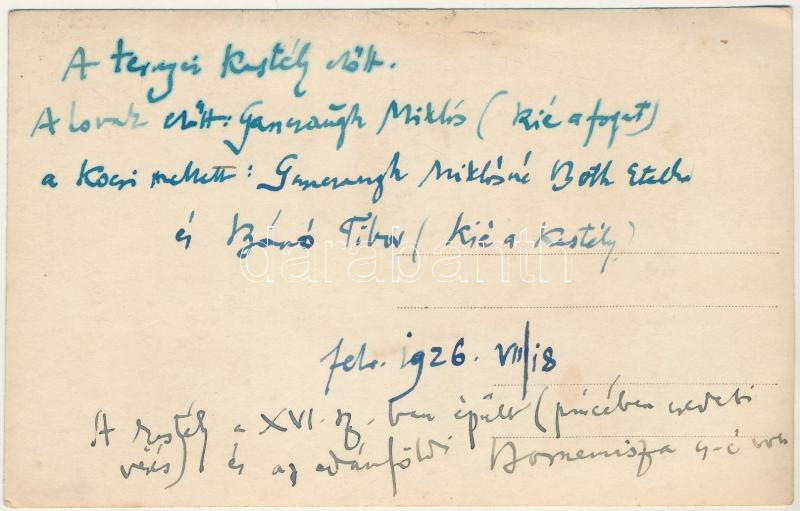 A ternyei Kastély előtt.
A lovak előtt: Ganczaugh Miklós (kié a fogat)
a Kocsi mellett: Ganczaugh Miklósné Both Etelka
és Bánó Tibor (kié a Kastély)
darabanth
felv. 1926. VII/18
A Kastély a XVI. sz.-ban épült (pincében eredeti
vésés) és az Bornemisza cs-é volt